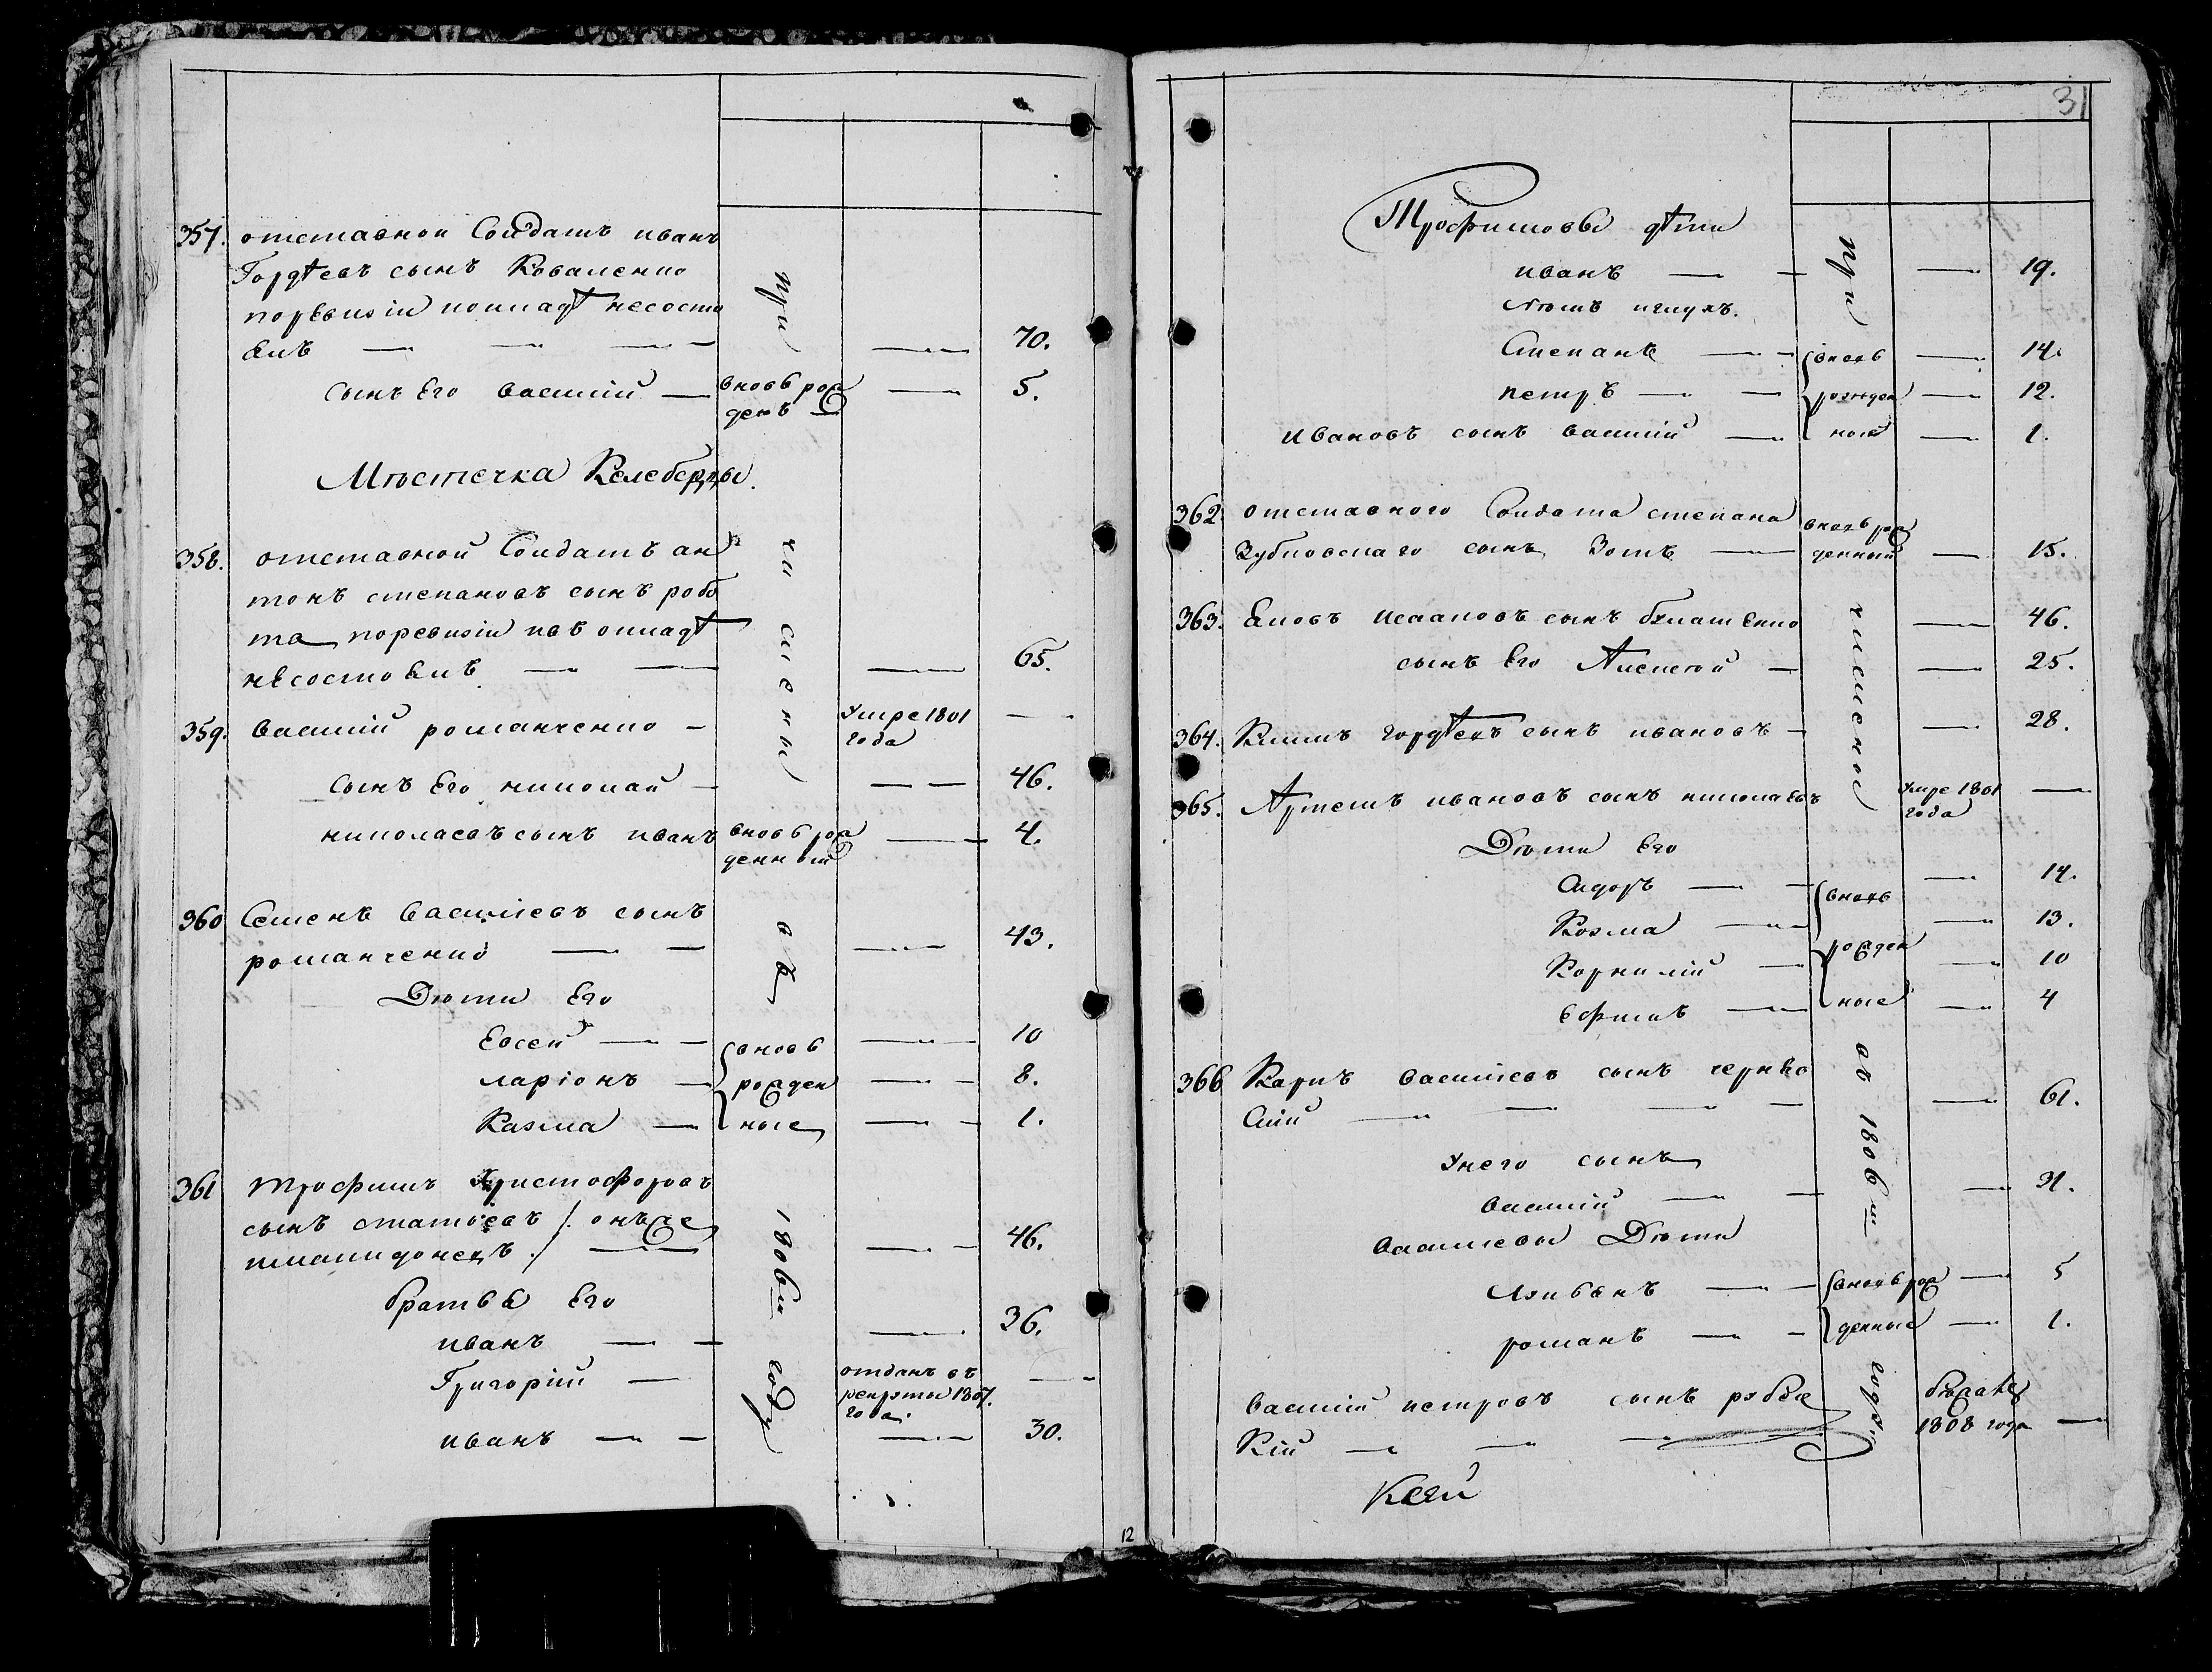 357. отставной Солдатъ иванъ
Гордѣевъ сынъ Коваленко
поревизіи вокладѣ несосто
елъ — — — 70.
сынъ Его василий — вновъ рож
денъ — 5.
Мѣстечка Келеберды.
358. отставной Солдатъ ан
тонъ степановъ сынъ робо
та поревизіи ивъ окладѣ
несостоелъ — — 65.
359. василий романченко — умре 1801
года —
сынъ Его николай — — 46.
николаевъ сынъ иванъ вновъ рож
денный — 4.
360 Семенъ василиевъ сынъ
романченко — — 43.
Дѣти Его
Евсей — вновъ — 10
ларіонъ — рожден — 8.
Казма — ные — 1.
361 трофимъ Христофоровъ
сынъ статъевъ /. онъже
македонецъ ./ — 46.
братья Его
иванъ — — 36.
Григорій — отданъ въ
рекруты 1807.
года. —
иванъ — — 30.
при
числени
овъ
1806м
году
12
31
Трофимовы дѣти
иванъ — — 19.
Степанъ — вновъ — 14.
петръ — рожден — 12.
ивановъ сынъ василий — ные — 1.
362. отставного Солдата степана вновъ рож
Зубковскаго сынъ Зотъ — денный — 15.
363. Яковъ исааковъ сынъ — 46.
сынъ Его Алексей — — 25.
364. Климъ гордѣевъ сынъ ивановъ — — 28.
365. Артемъ ивановъ сынъ николаевъ умре 1801
года —
Дѣти Его
Сидоръ — — 14.
вновъ
Козма — — 13.
рожден
Корнилій — — 10
Ефимъ — ные — 4
366 Карпъ василиевъ сынъ черняв
скій — — — — 61.
Унего сынъ
василий — — 31.
василиевы Дѣти
вновъ рож — 5
романъ — — денные — 1.
василий петровъ сынъ
Кій — — — бѣжалъ
1808 года —
при
числение
въ 1806м
году